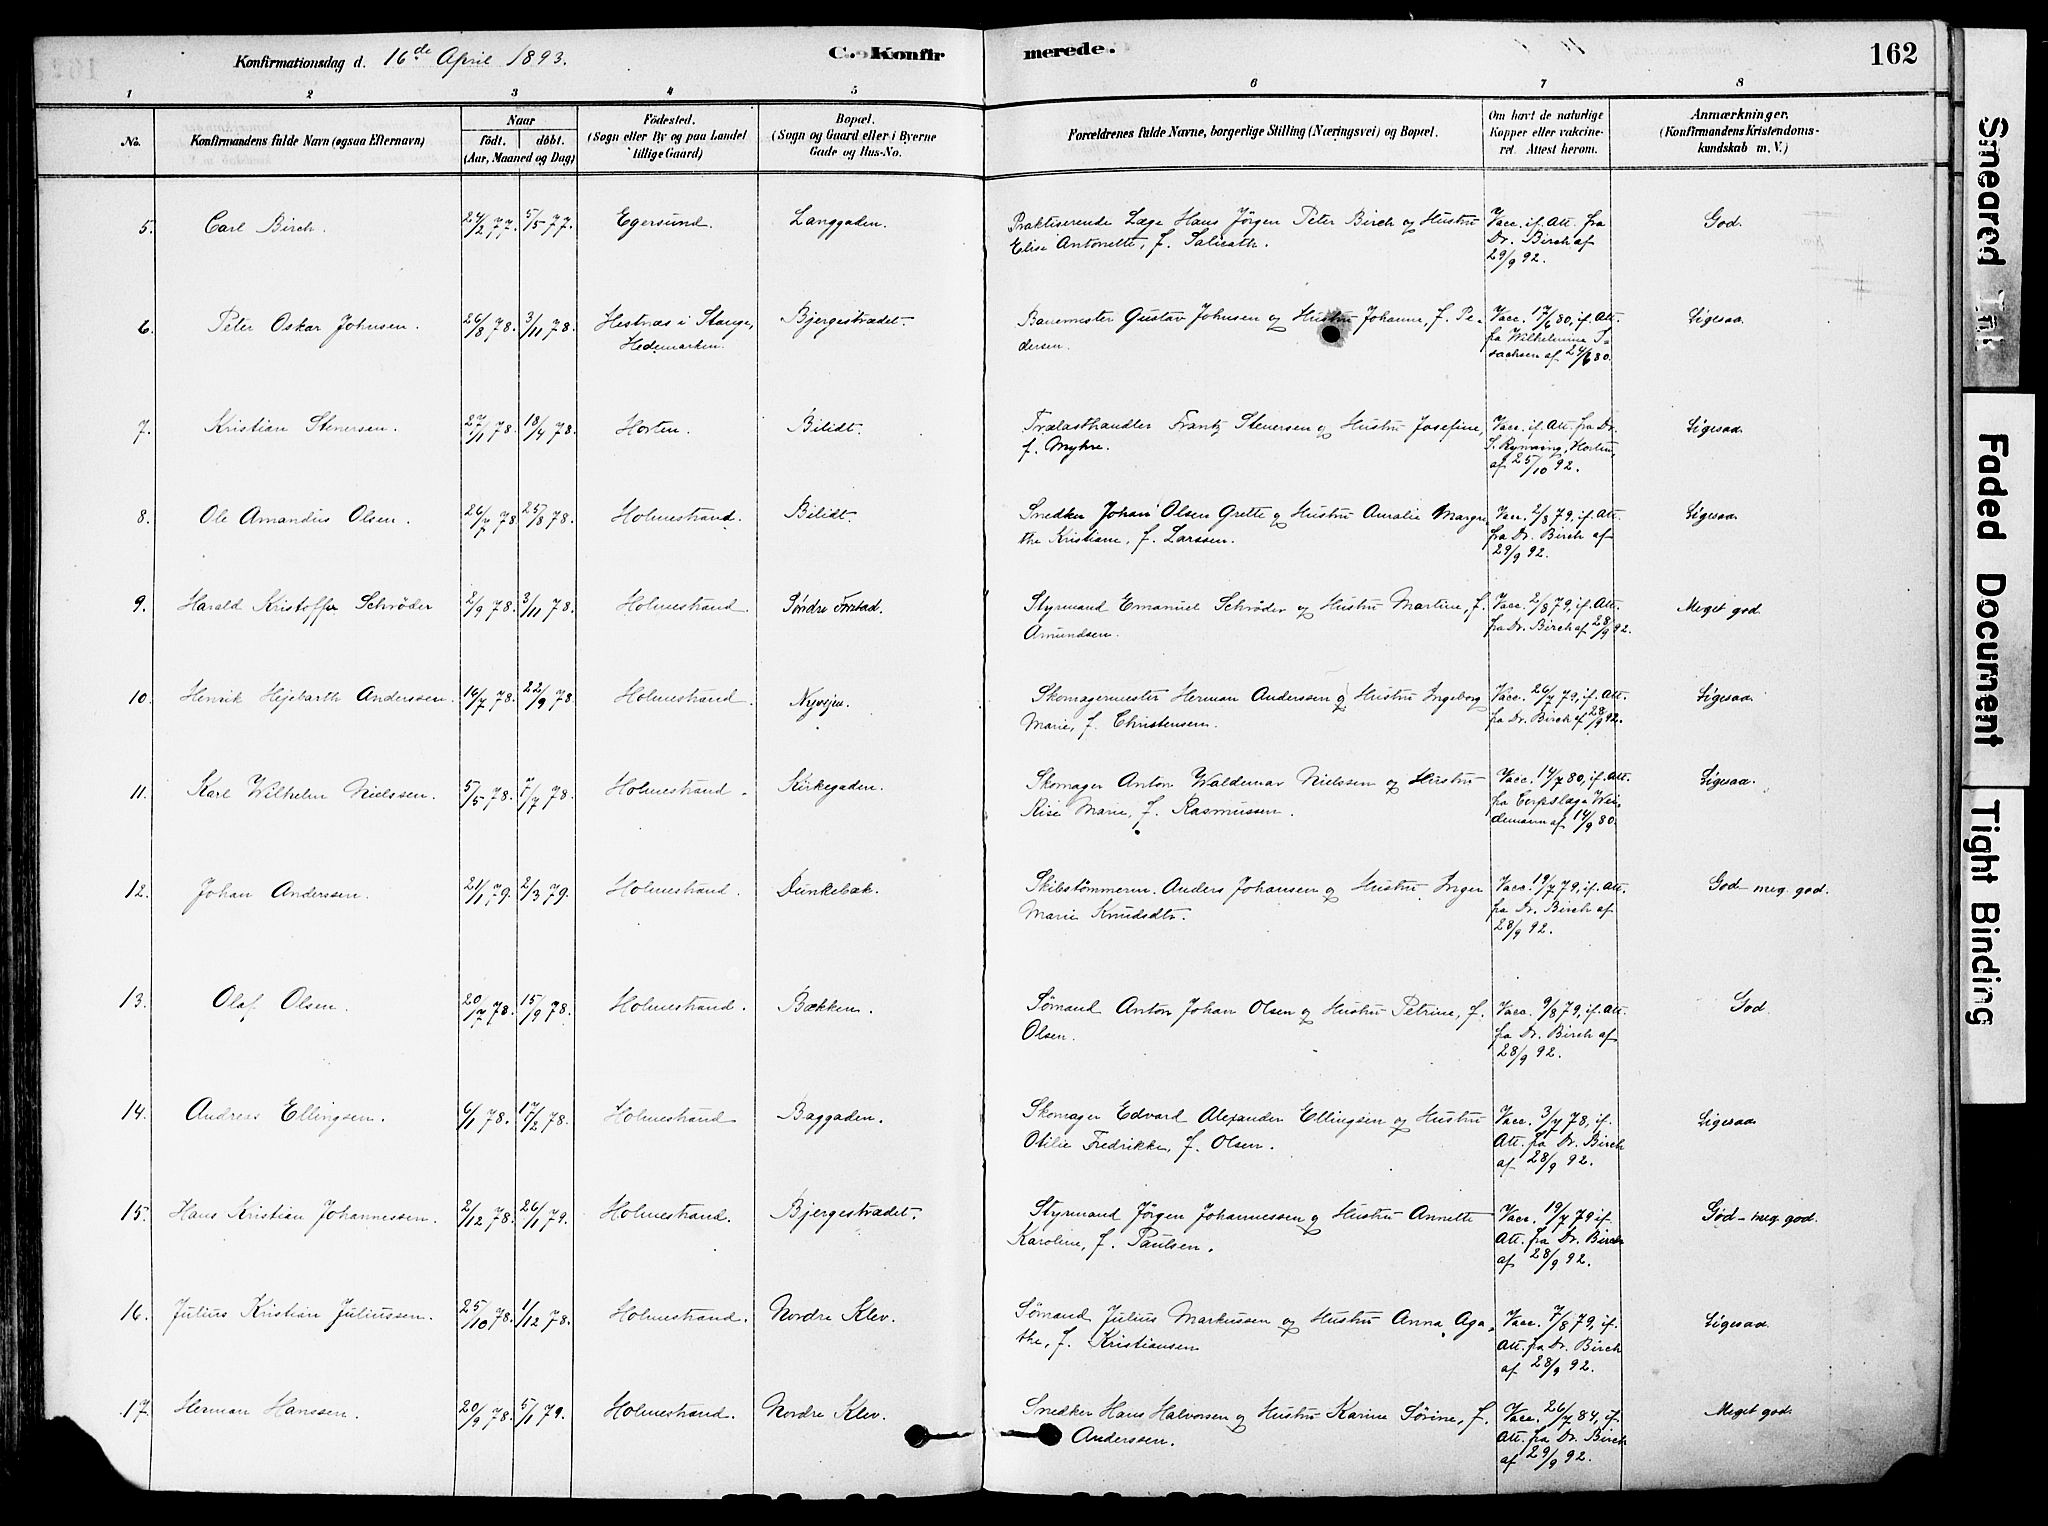 Konfirmationsdag d. 16de April 1893.
C. Konfir
merede.
162
1 2 3 4 5 6 7 8
No.
Konfirmandens fulde Navn (ogsaa Efternavn)
Naar
födt. döbt.
(Aar, Maaned og Dag)
Födested.
(Sogn eller By og paa Landet
tillige Gaard)
Bopæl.
(Sogn og Gaard eller i Byerne
Gade og Hus-No.
Forældrenes fulde Navne, borgerlige Stilling (Næringsvei) og Bopæl.
Om havt de naturlige
Kopper eller vakcine-
ret. Attest herom.
Anmærkninger.
(Konfirmandens Kristendoms-
kundskab m. V.)
5. Carl Birch. 24/2 77. 5/5 77. Egersund. Langgaden. Praktiserende Læge Hans Jörgen Peter Birch og Hustru Vacc. if. Att. fra God.
Elise Antonette, f. Dr. Birch af
29/9 92.
6. Peter Oskar Johnsen. 26/8 78. 3/11 78. Hestnæs i Stange, Bjergestrædet. Banemester Gustav Johnsen og Hustru Johanne, f. Pe- Vacc. 17/6 80, if. Att. Ligesaa.
Hedemarken. dersen. fra Wilhelmine I-
sachsen af 24/6 80.
7. Kristian Stenersen. 27/1 78. 18/4 78. Horten. Bilidt. Trælasthandler Frantz Stenersen og Hustru Josefine, Vacc. if. Att. fra Dr. Ligesaa.
f. Myhre. Horten,
af 25/10 92.
8. Ole Amandus Olsen. 26/7 78. 25/8 78. Holmestrand. Bilidt. Snedker Johan Olsen Grette og Hustru Amalie Margre- Vacc. 2/8 79, if. Att. Ligesaa.
the Kristiane, f. Larssen. fra Dr. Birch af
29/9 92.
9. Harald Kristoffer Schröder 2/9 78. 3/11 78. Holmestrand Söndre Forstad. Styrmand Emanuel Schröder og Hustru Martine, f. Vacc. 2/8 79, if. Att. Meget god.
Amundsen. fra Dr. Birch af 28/9 92.
10. Henrik Hejebarth Anderssen. 16/7 78. 22/9 78. Holmestrand. Nyvejen. Skomagermester Herman Anderssen og Hustru Ingeborg Vacc. 26/7 79, if. Att. Ligesaa.
Marie, f. Christensen. fra Dr. Birch af 28/9 92.
11. Karl Wilhelm Nielssen. 5/5 78. 7/7 78. Holmestrand. Kirkegaden. Skomager Anton Waldemar Nielssen og Hustru Vacc. 14/7 80, if. Att. Ligesaa.
Marie, f. Rasmussen. fra Corpslæge Wei-
demann af 14/9 80.
12. Johan Anderssen. 21/1 79. 2/3 79. Holmestrand. Dunkebæk. Skibstömmerm. Anders Johansen og Hustru Inger Vacc. 19/7 79, if. Att. God - meg. god.
Marie Knudsdtr. fra Dr. Birch af
28/9 92.
13. Olaf Olsen. 20/7 78. 15/9 78. Holmestrand. Bækken. Sömand Anton Johan Olsen og Hustru Petrine, f. Vacc. 9/8 79, if. Att. God.
Olsen. fra Dr. Birch af
28/9 92.
14. Andreas Ellingsen. 6/1 78. 17/2 78. Holmestrand Baggaden. Skomager Edvard Alexander Ellingsen og Hustru Vacc. 3/7 78, if. Ligesaa.
Otilie Fredrikke, f. Olsen. Att. fra Dr. Birch
af 28/9 92.
15. Hans Kristian Johannessen. 2/12 78. 26/11 79. Holmestrand. Bjergestrædet. Styrmand Jörgen Johannessen og Hustru Annette Vacc. 19/7 79 if. God - meg. god.
Karoline, f. Paulsen. Att. fra Dr. Birch
af 28/9 92.
16. Julius Kristian Juliussen. 25/10 78. 1/12 78. Holmestrand. Nordre Klev. Sömand Julius Markussen og Hustru Anna Aga- Vacc. 7/8 79, if. Ligesaa.
the, f. Kristiansen Att. fra Dr. Birch
af 28/9 92.
17. Herman Hanssen. 20/9 78. 5/1 79. Holmestrand. Nordre Klev. Snedker Hans Halvorsen og Hustru Karine Sörine, f. Vacc. 26/7 84, if. Meget god.
Anderssen. Att. fra Dr. Birch
af 29/9 92.
Smeared Ink
Faded Document
Tight Binding